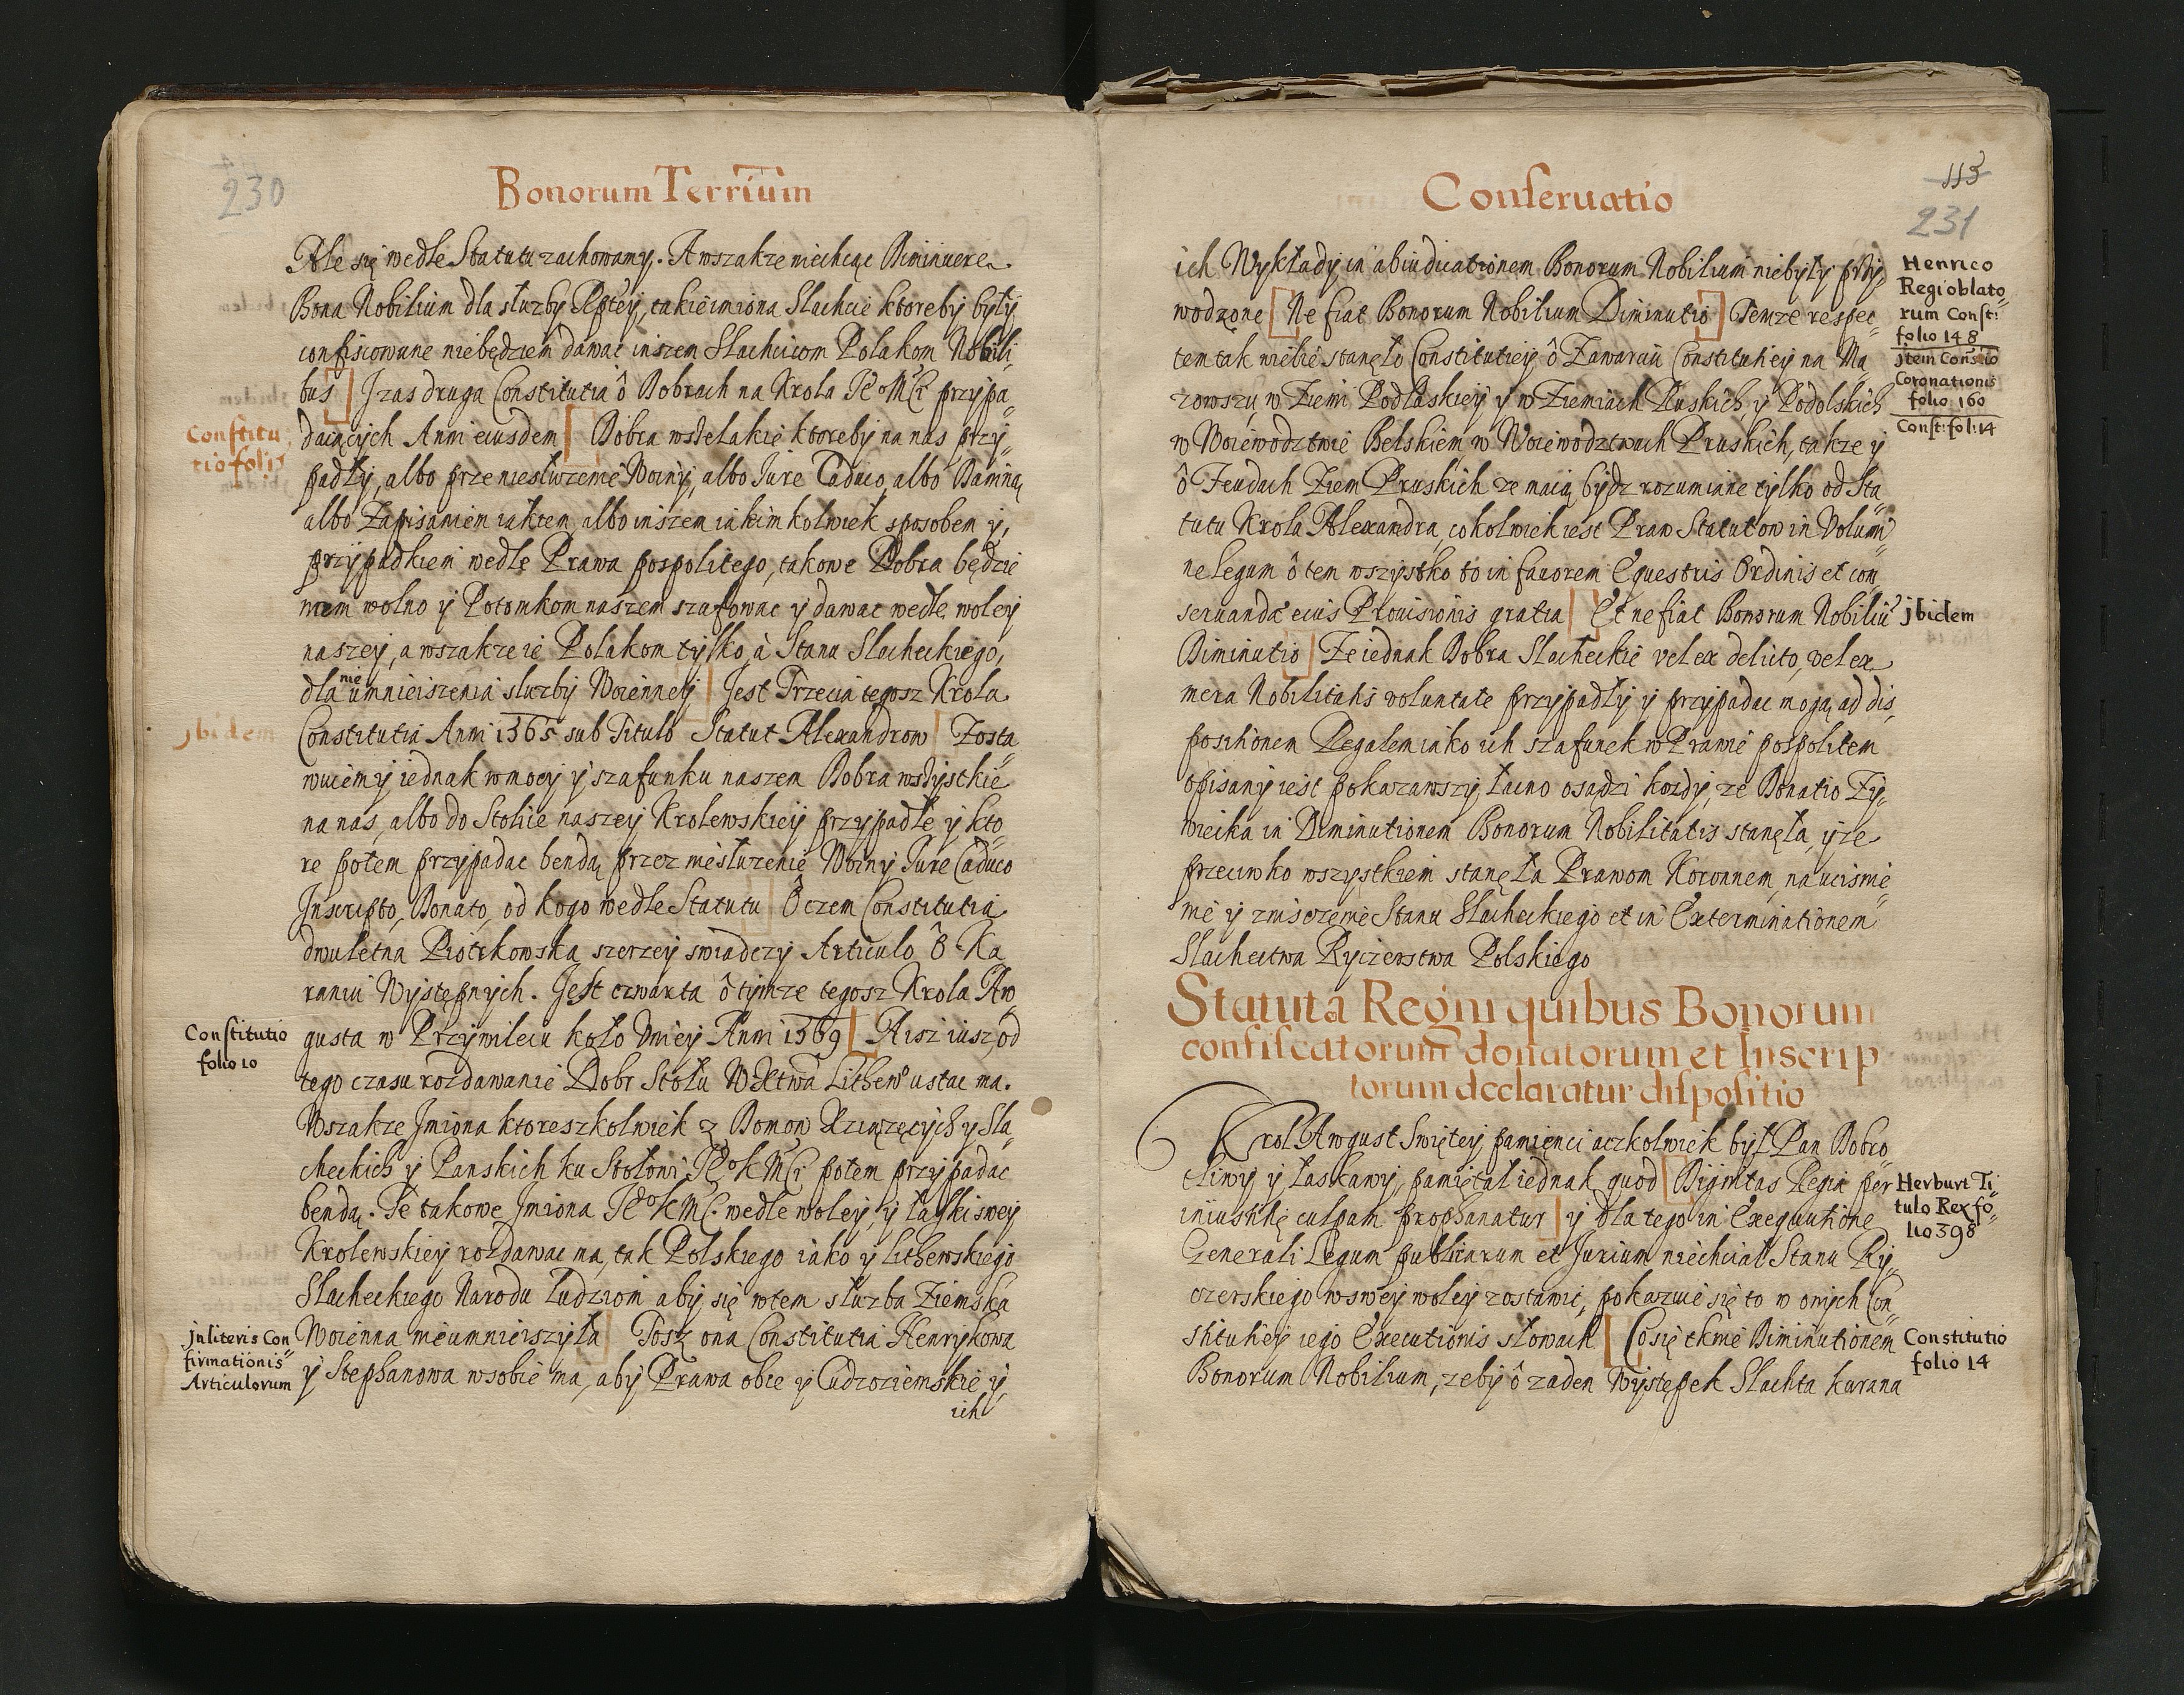 230
Bonorum Terrium
Ale się wedle Statutu zachowamy. A wszakze niechcąc Diminuere
Bona Nobilium dla słuzby Rptey, takie imiona Slachcie ktoreby były
confiscowane niebędziem dawac inszem Slachcicom Polakom Nobili
bus I zas druga Constitutia ô Dobrach na Krola przypa
daiących Anni eiusdem Dobra wszelakie ktoreby na nas przy
Constitu
tio foli
padły, albo prze niesłuzenie Woiny, albo Iure Caduco, albo Daniną
albo Zapisaniem iakiem, albo inszem iakim kolwiek sposobem y
przypadkiem wedle Prawa pospolitego, takowe Dobra będzie
nam wolno y Potomkom naszem szafowac y dawac wedle woley
naszey, a wszakze ie Polakom tylko, à Stanu Slacheckiego,
dla nie umnieiszenia sluzby Woienney Jest Trzecia tegosz Krola
jbidem
Constitutia Anni 1565 sub Titulo Statut Alexandrow Zosta
wuiemy iednak w mocy y szafunku naszem Dobra wszystkie
na nas, albo do Stolice naszey Krolewskiey przypadłe y kto
re potem przypadac bendą przez niesłuzenie Woiny Iure Caduco
Inscripto, Donato, od kogo wedle Statutu Ô czem Constitutia
dwuletna Piotrkowska szerzey swiadczy Articulo Ô Ka
raniu Występnych. Jest czwarta ô tymze tegosz Krola Aw
gusta w Przywileiu koło Vniey Anni 1569 Aisz iusz od
Constitutio
folio 10
tego czasu rozdawanie Dobr Stołu Lithewo ustac ma.
Wszakze Jmiona ktoreszkolwiek z Domow Xziązęcych y Sla
checkich y Panskich ku Stołowi potem przypadac
bendą. Te takowe Jmiona wedle woley, y łaski swey
Krolewskiey rozdawac ma, tak Polskiego iako y Lithewskiego
Slacheckiego Narodu Ludziom aby się wtem słuzba Ziemska
Woienna nieumnieiszyła Tosz ona Constitutia Henrykowa
jn literis Con
firmationis
Articulorum
y Stephanowa wsobie ma, aby Prawa obce y Cudzoziemskie y
ich
113
231
Conseruatio
ich Wykłady in abiudicationem Bonorum Nobilium niebyły przy
wodzone Ne fiat Bonorum Nobilium Diminutio Temze respec
tem tak wiele stanęło Constitutiey, ô Zawarciu Constitutiey na Ma
zowszu w Ziemi Podlaskiey y w Ziemiach Ruskich y Podolskich
w Woiewodztwie Belskiem, w Woiewodztwach Pruskich, takze y
Henrico
Regi oblato
rum Consti
folio 148
jtem Cons:tio
Coronationis
folio 160
Const: fol: 14
ô Feudach Ziem Pruskich ze maią bydz rozumiane tylko od Sta
tutu Krola Alexandra, cokolwiek iest Praw Statutow in Volumi
ne legum ô tem wszystko to in fauorem Equestris Ordinis et con
seruandae eius Prouisionis gratia Et ne fiat Bonorum Nobiliu
jbidem
Diminutio Ze iednak Dobra Slacheckie vel ex delicto, vel ex
mera Nobilitatis voluntate przypadły y przypadac mogą, ad dis
positionem Regalem iako ich szafunek w Prawie pospolitem
opisany iest pokazawszy, łacno osądzi kozdy, ze Donatio Zy
wieika in Diminutionem Bonorum Nobilitatis stanęła, y ze
przeciwko wszystkiem stanęła Prawom Koronnem, na ucisnie
nie y zniszczenie Stanu Slacheckiego et in Exterminationem
Slachectwa Ryczerstwa Polskiego
Statuta Regni quibus Bonorum
confiscatorum donatorum et Inscrip
torum declaratur dispositio
Krol Awgust Swiętey pamienci aczkolwiek był Pan Dobro
tliwy y łaskawy, pamiętał iednak quod Dignitas Regia per
iniustitię culpam prophanatur y dla tego in Exequutione
Herburt Ti
tulo Rex fo
lio 398
Generali Legum publicarum et Jurium niechciał Stanu Ry
czerskiego wswey woley zostawic, pokazuie się to w onych Con
stitutiey iego Executionis słowach Co się tknie Diminutionem
Constitutio
folio 14
Bonorum Nobilium, zeby ô zaden Występek Slachta karana